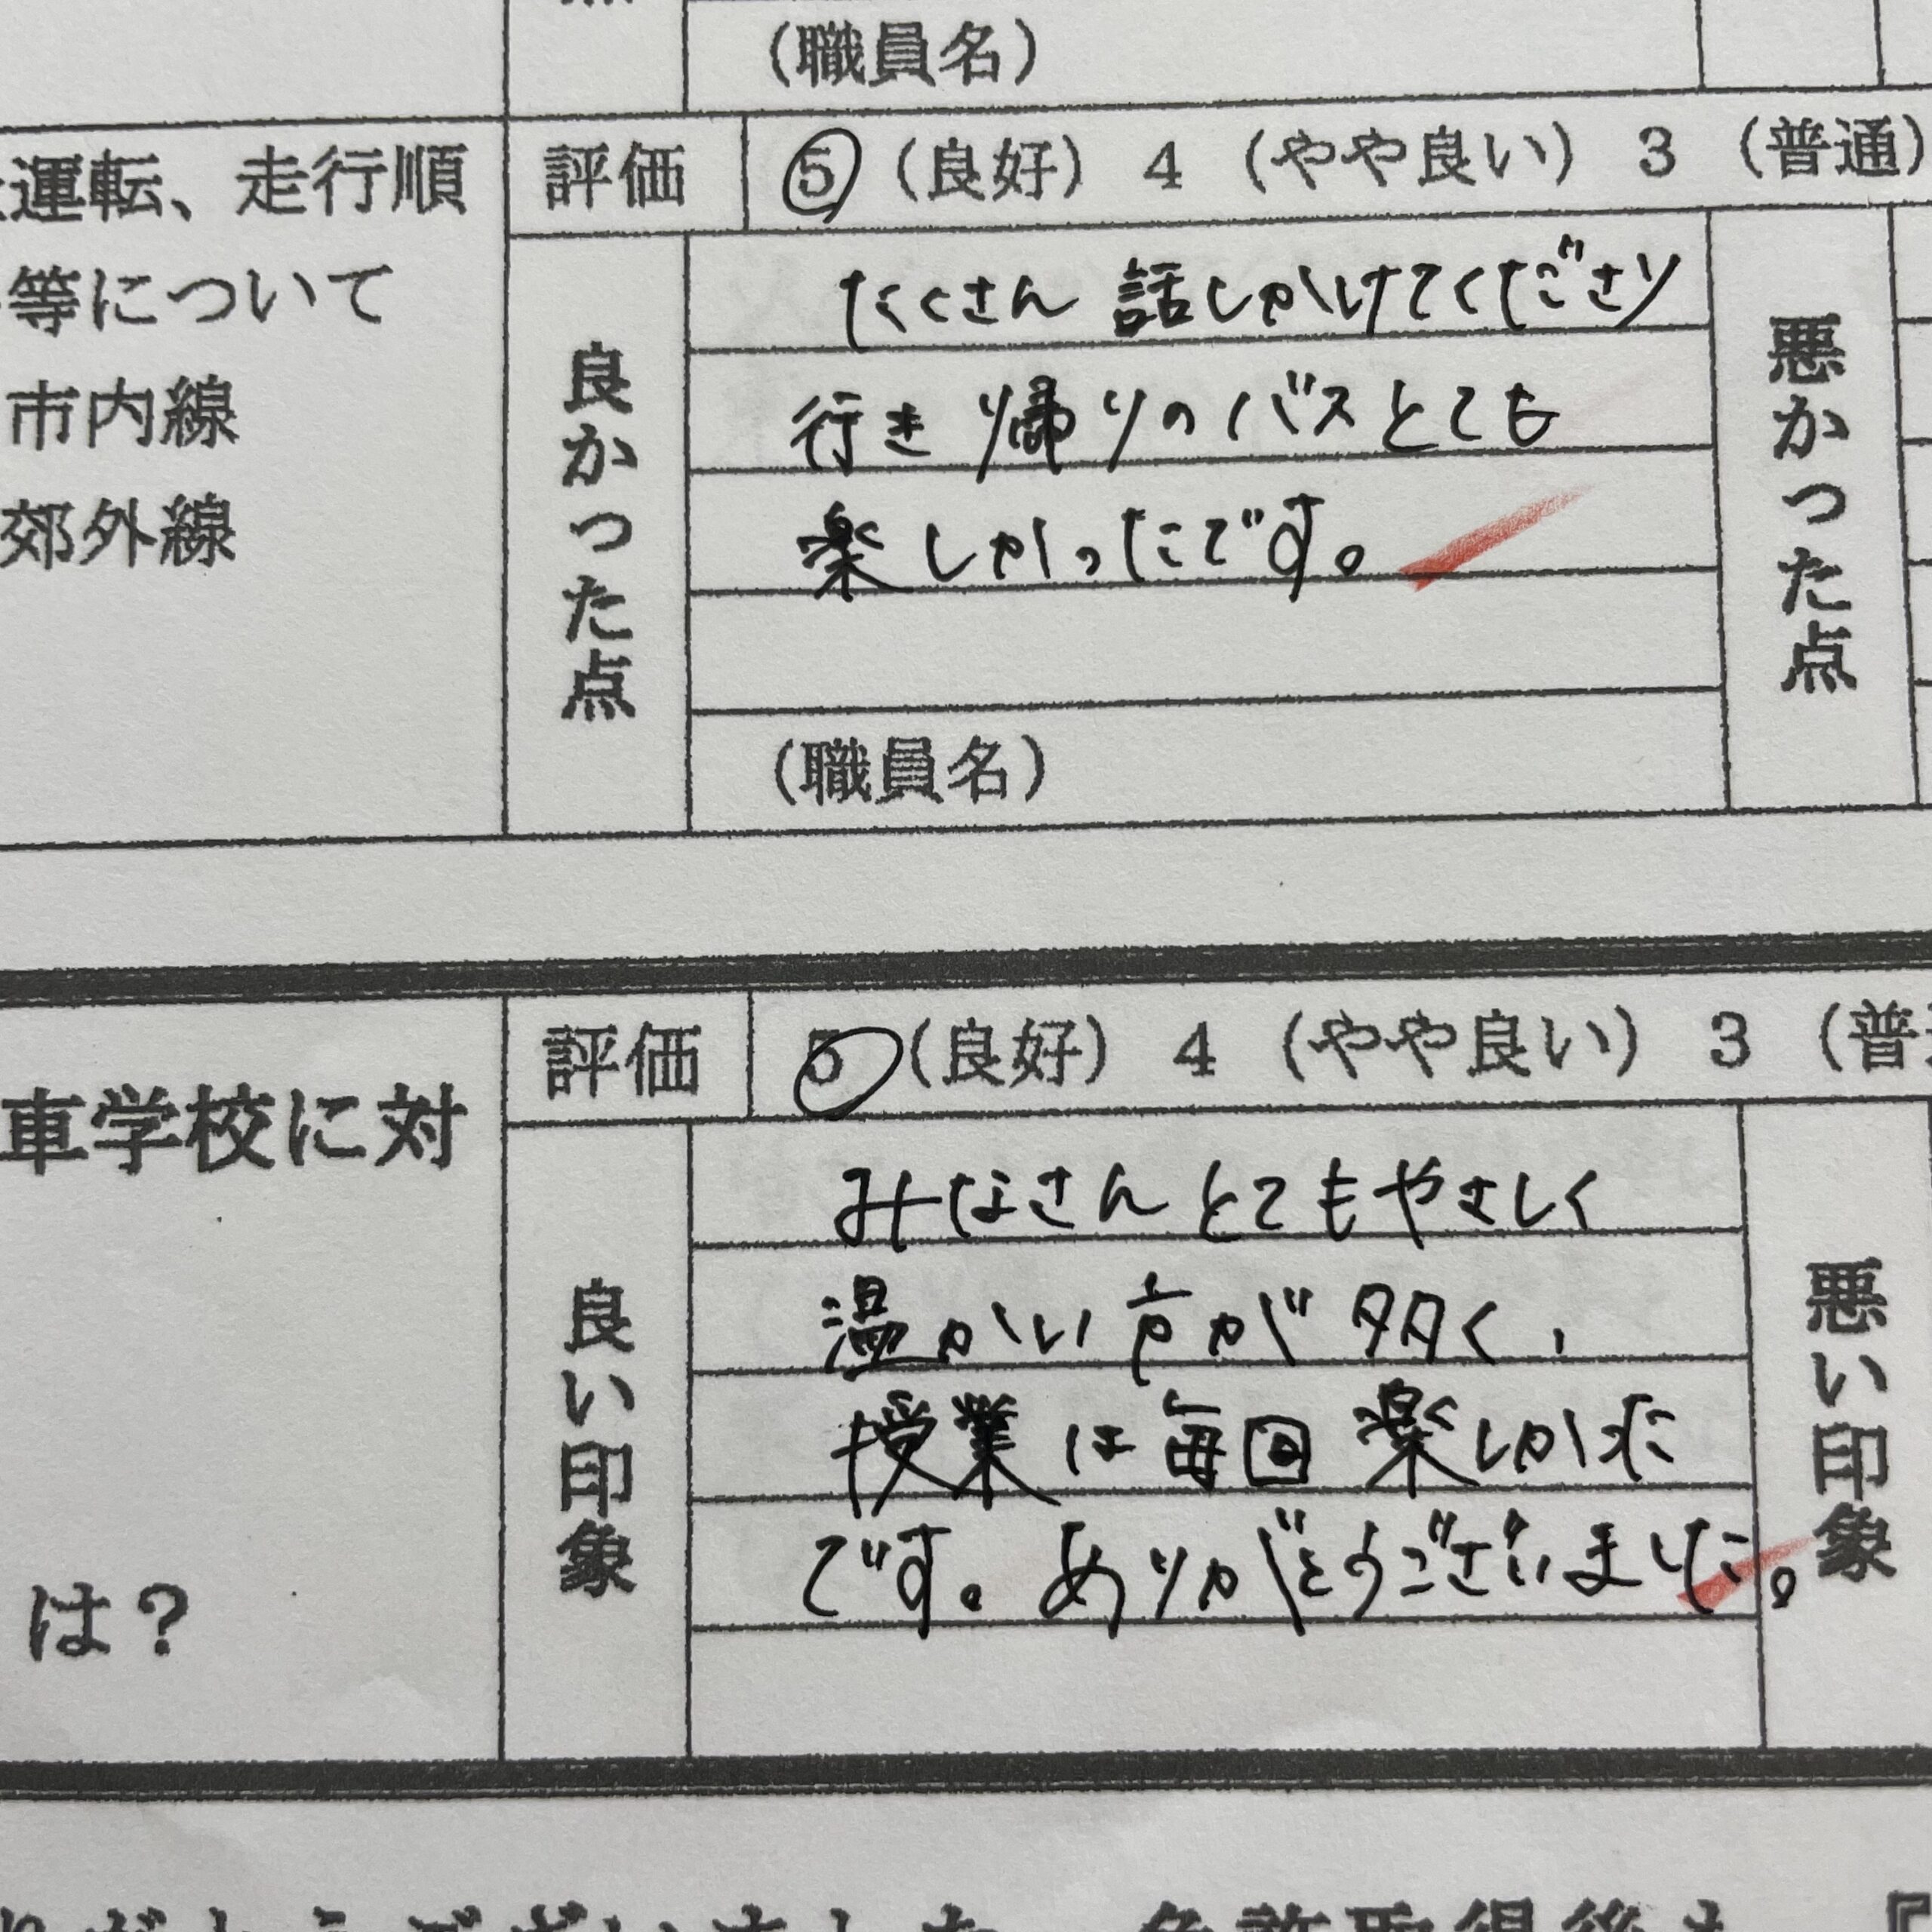 (職員名)
運転、走行順
等について
市内線
郊外線
評価
5 (良好) 4 (やや良い) 3 (普通)
良かった点
たくさん話しかけてくださり
行き帰りのバスとても
楽しかったです。
(職員名)
悪かった点
車学校に対
は？
評価
5 (良好) 4 (やや良い) 3 (普
良い印象
みなさんとてもやさしく
温かい方が多く、
授業は毎回楽しかった
です。ありがとうございました。
悪い印象